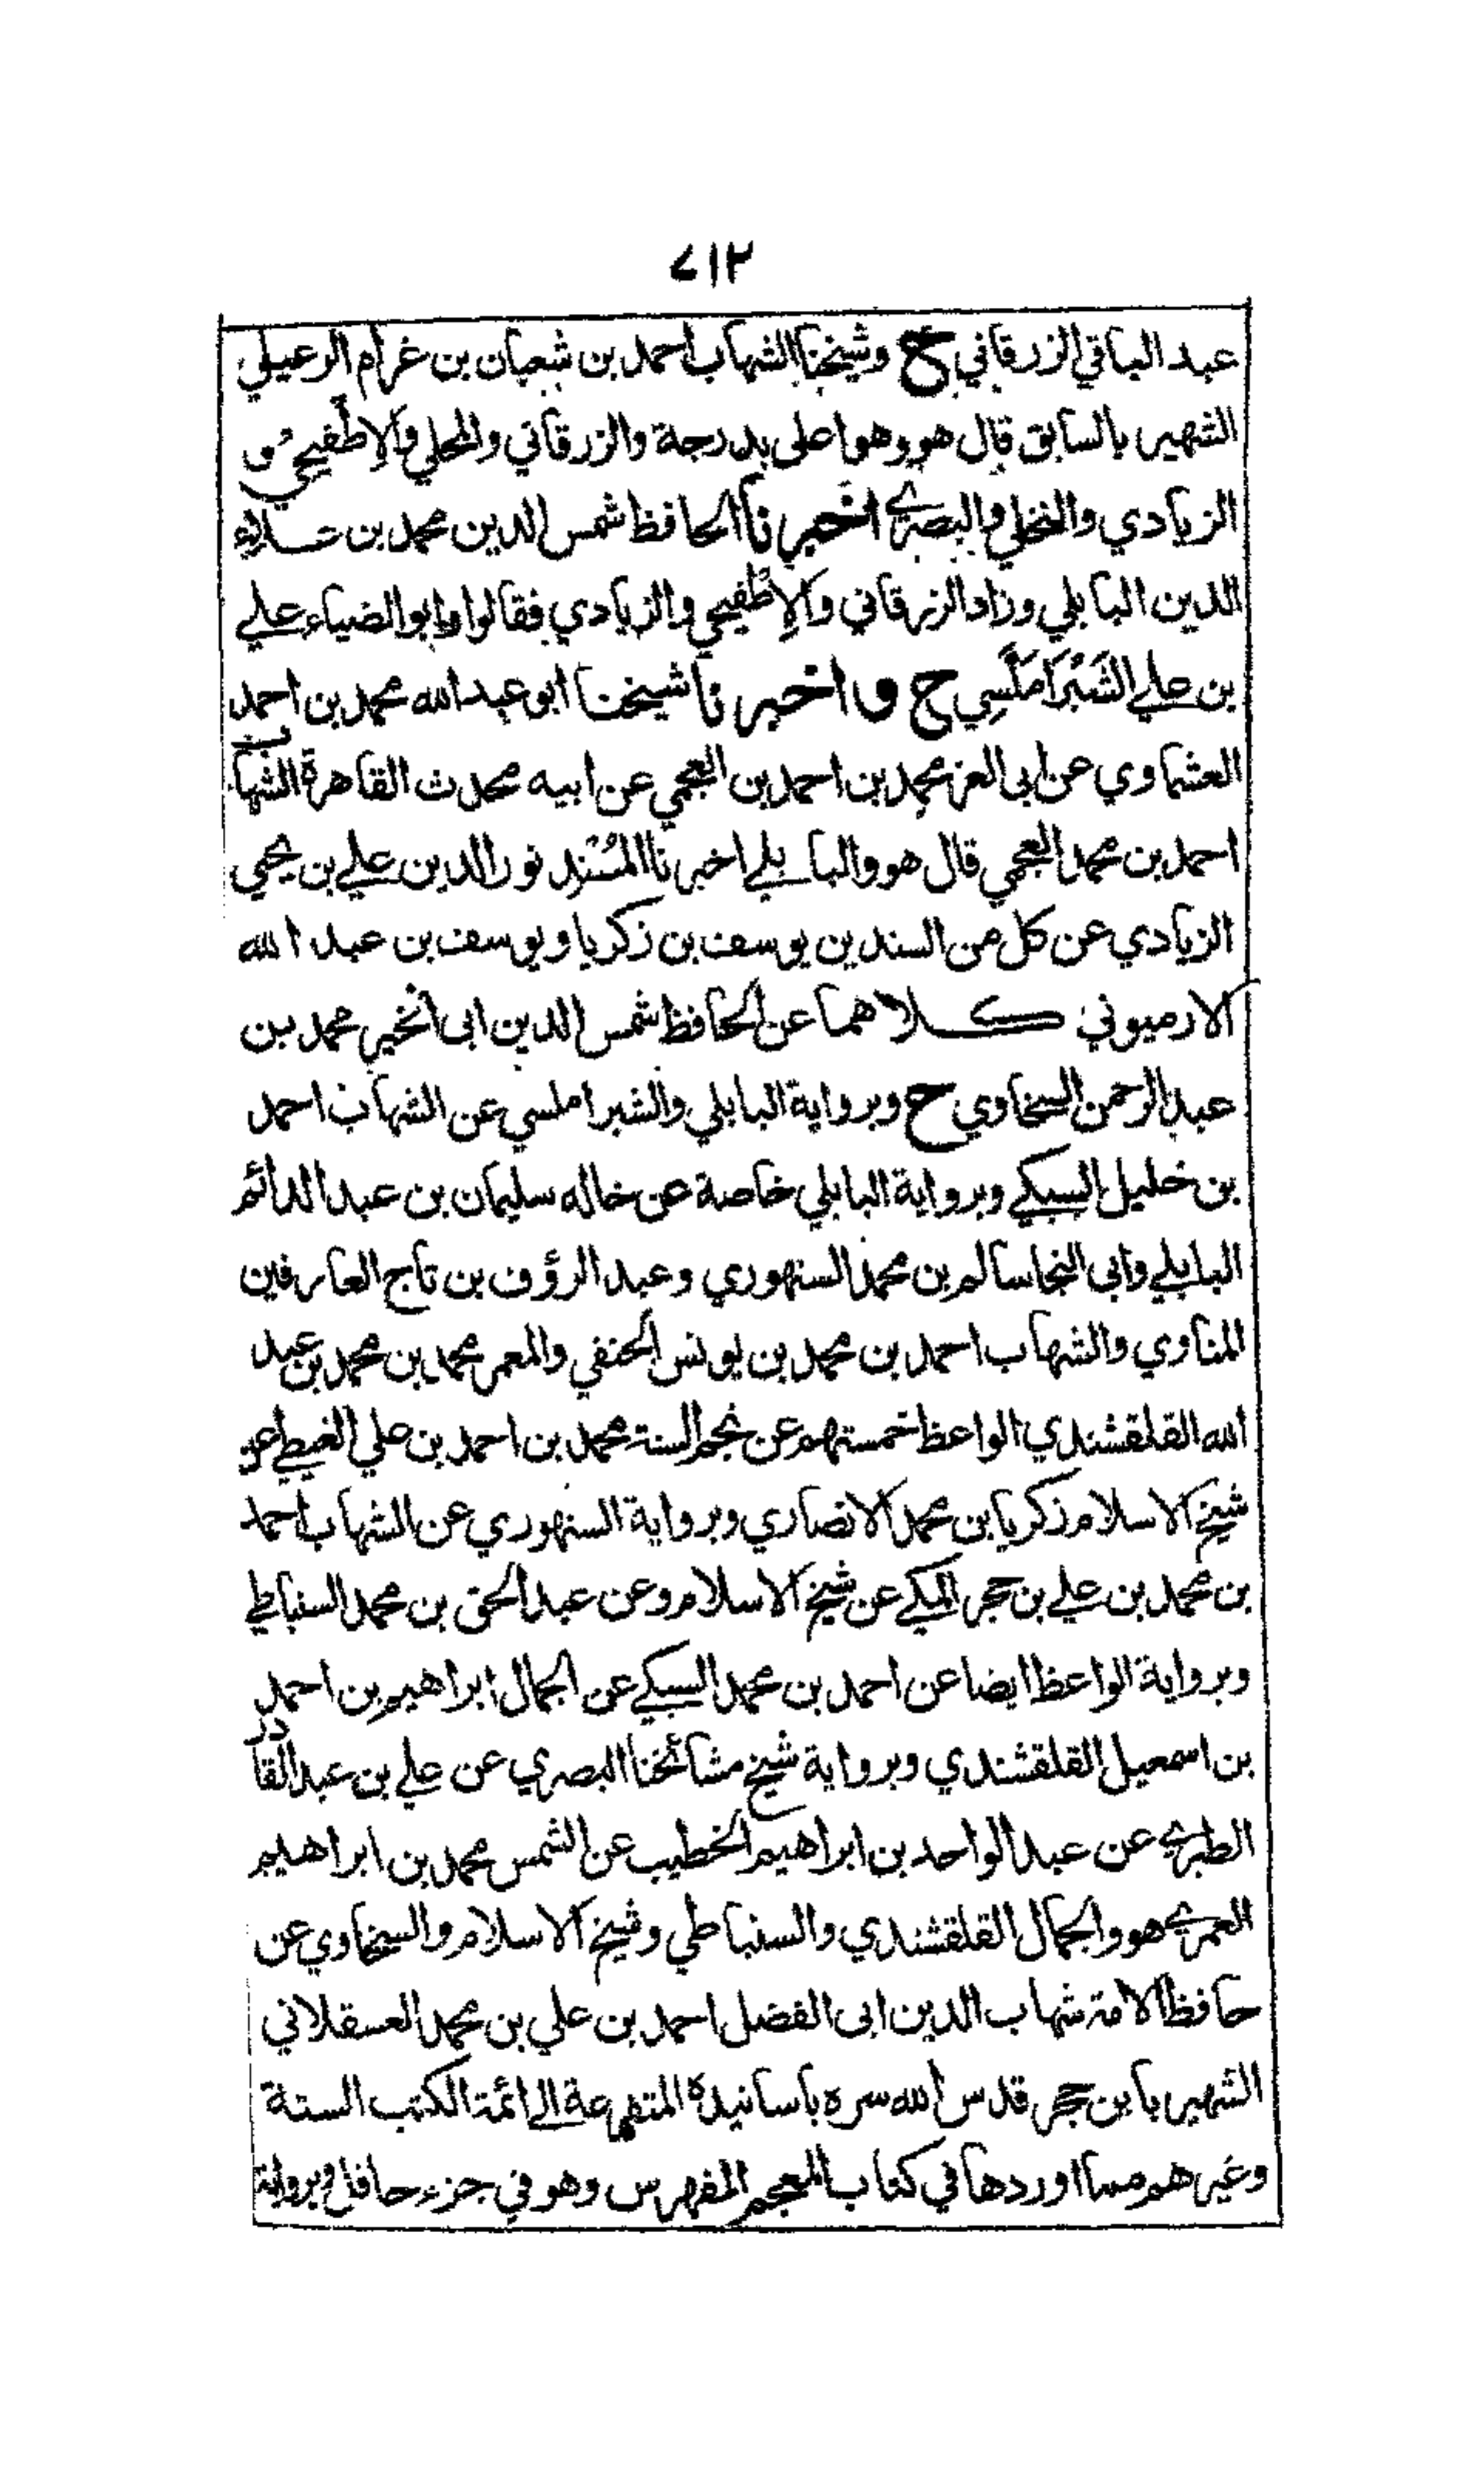 ٧١٢
عبد الباقي الزرقاني ح وشيخنا الشهاب احمد بن شعبان بن غرام الرعيلي
الشهير بالسابق قال هو وهو اعلى بدرجة والزرقاني والمحلي والإطفيحي و
الزيادي والنخلي والبصري اخبرنا الحافظ شمس الدين محمد بن علاء
الدين البابلي وزاد الزرقاني والإطفيحي والزيادي فقالوا وابو الضياء علي
بن علي الشَبْرَامَلَّسِي ح واخبرنا شيخنا ابو عبد الله محمد بن احمد
العشماوي عن ابى العز محمد بن احمد بن العجمي عن ابيه محدث القاهرة الشهاب
احمد بن محمد العجمي قال هو والبابلي اخبرنا المُسْنِد نور الدين علي بن يحيى
الزيادي عن كل من السندين يوسف بن زكريا ويوسف بن عبد الله
الارميوني كلاهما عن الحافظ شمس الدين ابى الخير محمد بن
عبد الرحمن السخاوي ح وبرواية البابلي والشبراملسي عن الشهاب احمد
بن خليل السبكي وبرواية البابلي خاصة عن خاله سليمان بن عبد الدائم
البابلي وابى النجا سالم بن محمد السنهوري وعبد الرؤف بن تاج العارفين
المناوي والشهاب احمد بن محمد بن يونس الحنفي والمعمر محمد بن محمد بن عبد
الله القلقشندي الواعظ خمستهم عن نجم السنة محمد بن احمد بن علي الغيطي عن
شيخ الاسلام زكريا بن محمد الانصاري وبرواية السنهوري عن الشهاب احمد
بن محمد بن علي بن حجر المكي عن شيخ الاسلام وعن عبد الحق بن محمد السنباطي
وبرواية الواعظ ايضا عن احمد بن محمد السبكي عن الجمال ابراهيم بن احمد
بن اسمعيل القلقشندي وبرواية شيخ مشائخنا البصري عن علي بن عبد القادر
الطبري عن عبد الواحد بن ابراهيم الخطيب عن الشمس محمد بن ابراهيم
العمري هو والجمال القلقشندي والسنباطي وشيخ الاسلام والسخاوي عن
حافظ الامة شهاب الدين ابى الفضل احمد بن علي بن محمد العسقلاني
الشهير بابن حجر قدس الله سره باسانيده المتفرعة الى ائمة الكتب الستة
وغيرهم مما اوردها في كتاب المعجم المفهرس وهو في جزء حافل وبرواية